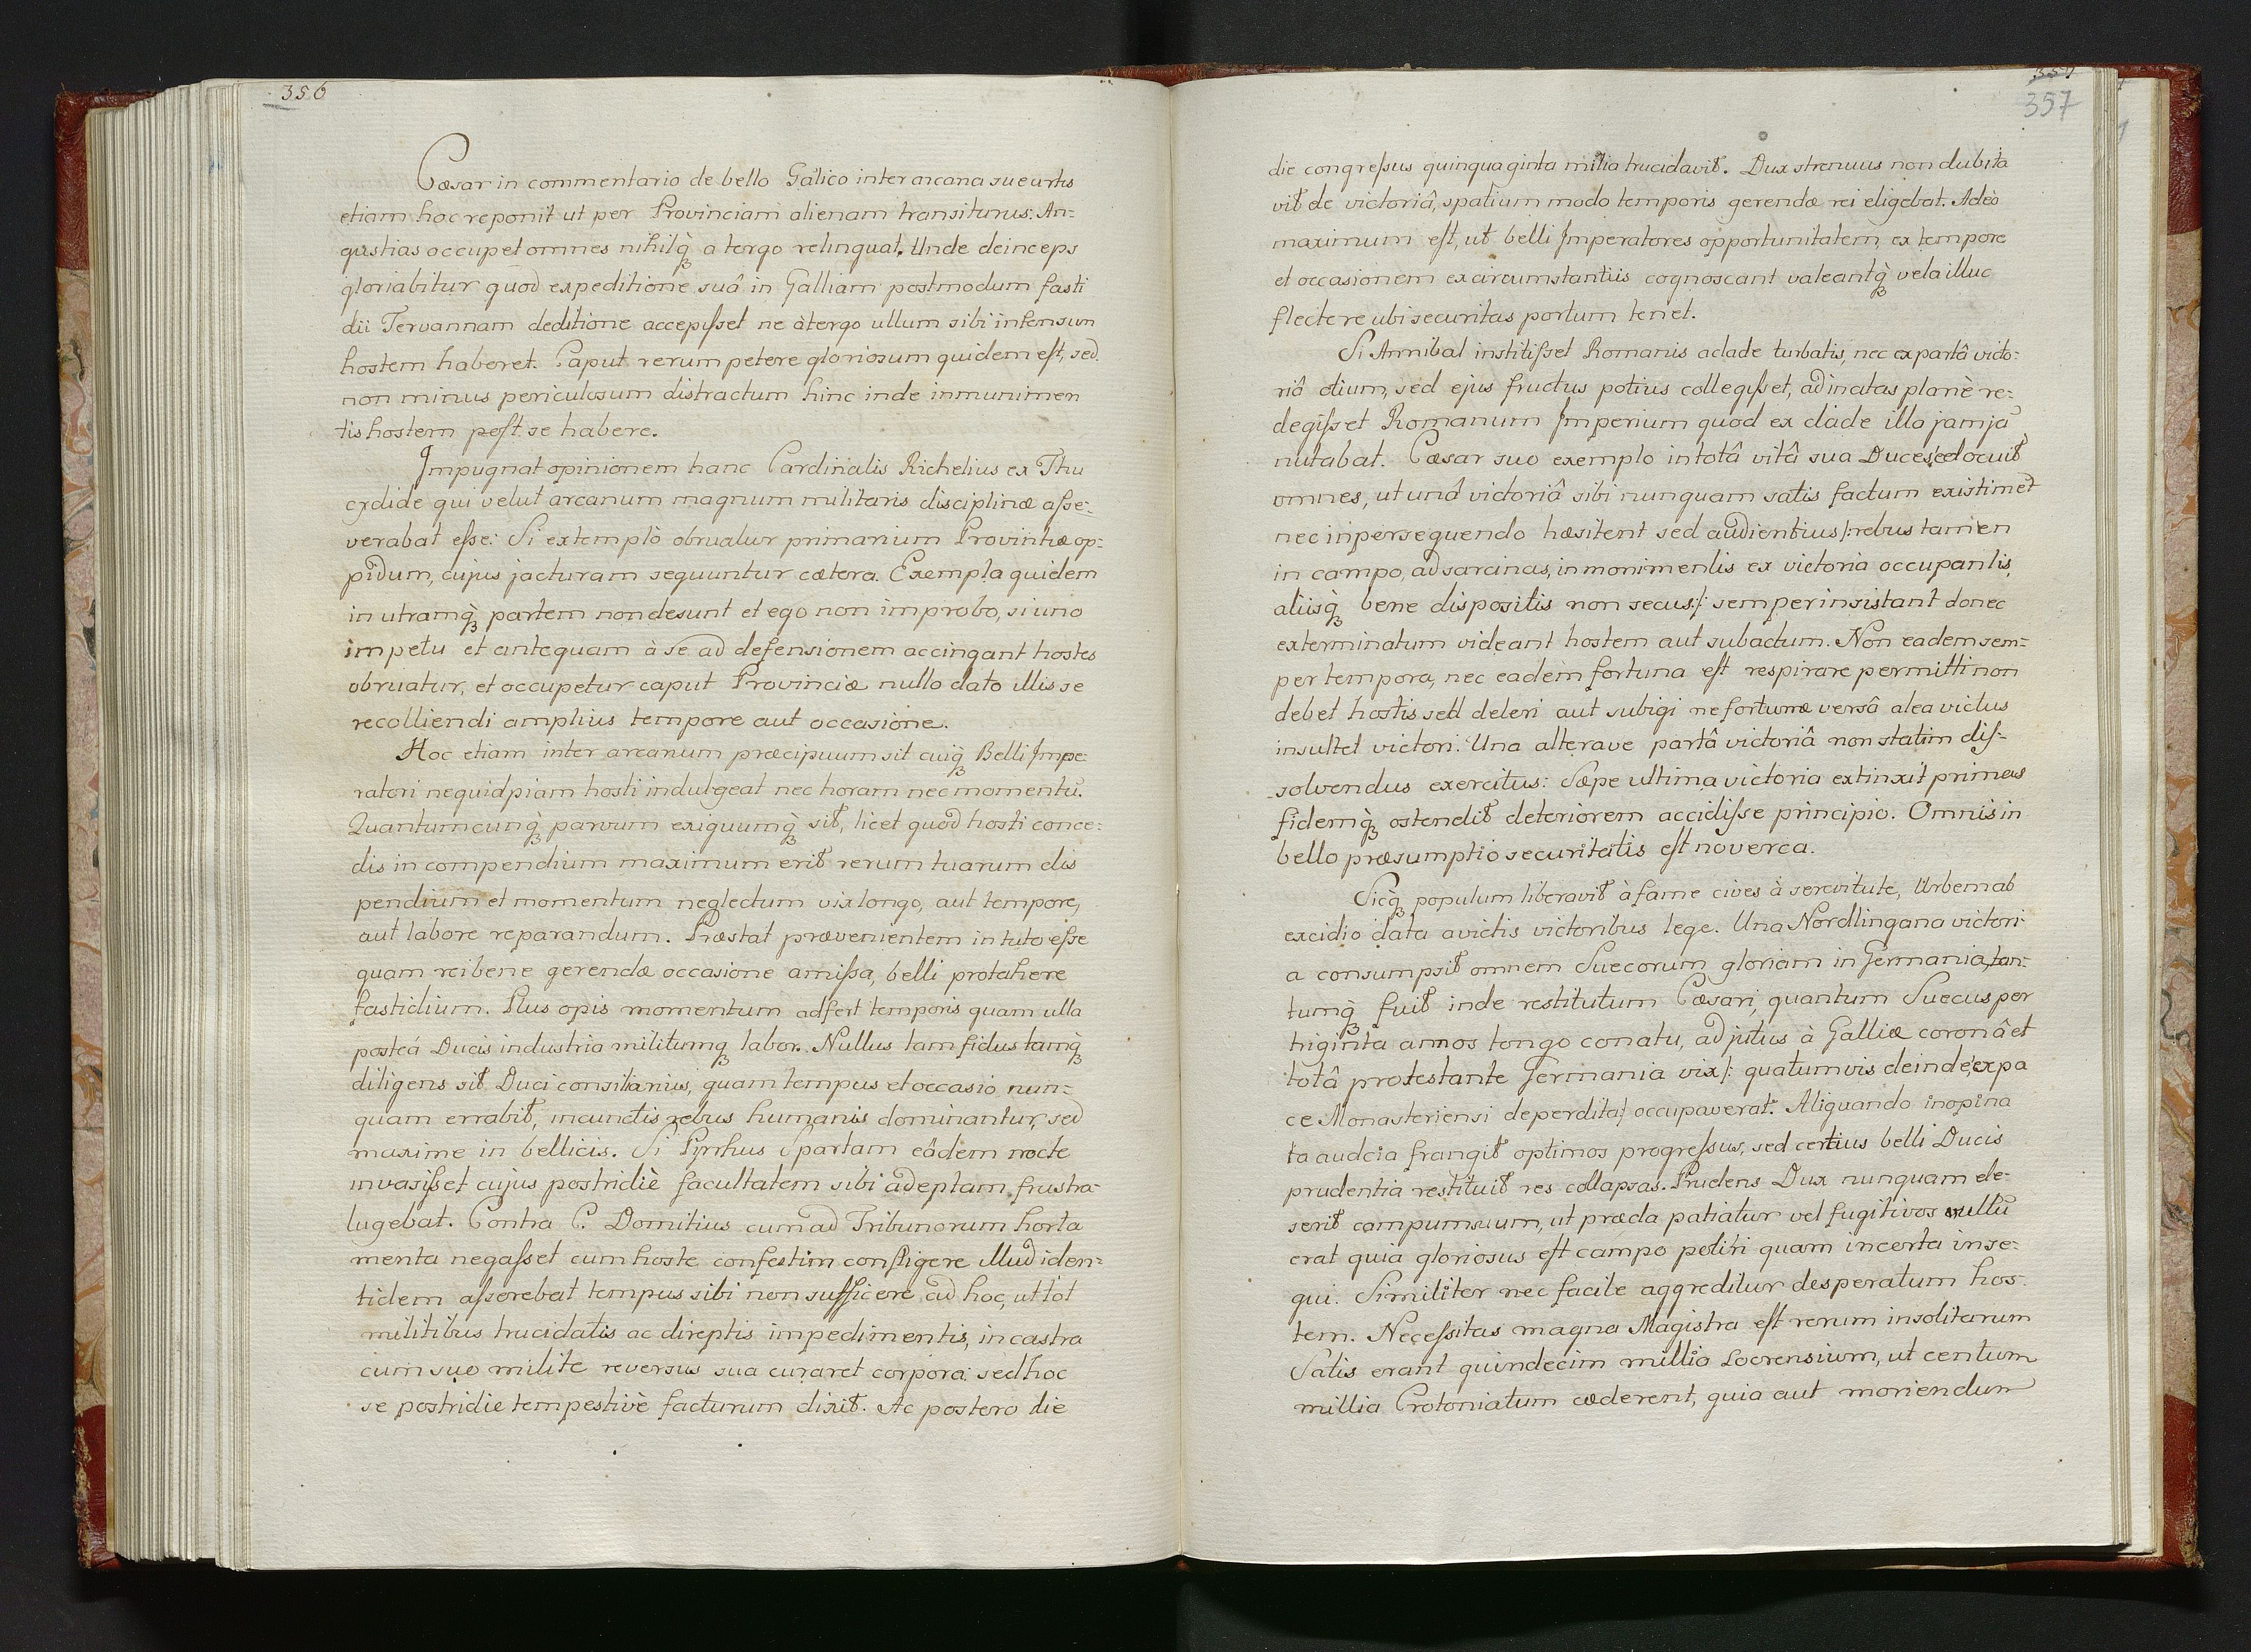 356
Cæsar in commentario de bello Galico inter arcana sue artis
etiam hoc reponit ut per Provinciam alienam transiturus: An=
gustias occupet omnes nihilq̀ꝫ a tergo relinquat. Unde deinceps
gloriabitur quod expeditione suâ in Galliam postmodum fasti
dii Tervannam deditione accepisset ne à tergo ullum sibi infensum
hostem haberet. Caput rerum petere gloriosum quidem est, sed
non minus periculosum distractum hinc inde in munimen
tis hostem post se habere.
Impugnat opinionem hanc Cardinalis Richelius ex Thu
cydide qui velut arcanum magnum militaris disciplinæ asse=
verabat esse: Si extemplò obruatur primarium Provintiæ op=
pidum, cujus jacturam sequuntur cætera. Exempla quidem
in utramq̀ꝫ partem non desunt et ego non improbo, si uno
impetu et antequam à se ad defensionem accingant hostes
obruatur, et occupetur caput Provinciæ nullo dato illis se
recolliendi amplius tempore aut occasione.
Hoc etiam inter arcanum præcipuum sit cuiq̀ꝫ Belli Impe=
ratori nequidpiam hosti indulgeat nec horam nec momentū.
Quantumcunq̀ꝫ parvum exiguumq̀ꝫ sit, licet quod hosti conce=
dis in compendium maximum erit rerum tuarum dis
pendium et momentum neglectum vix longo, aut tempore,
aut labore reparandum. Præstat prævenientem in tuto esse
quam rei bene gerendæ occasione amissa, belli protahere
fastidium. Plus opis momentum adfert temporis quam ulla
posteá Ducis industria militumqꝫ labor. Nullus tam fidus tamq̀ꝫ
diligens sit Duci consilianius, quam tempus et occasio nun=
quam errabit, in cunctis rebus humanis dominantur, sed
maxime in bellicis. Si Pyrrhus Spartam eâdem nocte
invasisset cujus postridiè facultatem sibi adeptam frustra
lugebat. Contra C. Domitius cum ad Tribunorum horta
menta negasset cum hoste confestim confligere illud iden=
tidem asserebat tempus sibi non sufficere ad hoc, ut tot
militibus trucidatis ac direptis impedimentis, in castra
cum suo milite reversus sua curaret corpora: sed hoc
se postridie tempestivè facturum dixit. Ac postero die
357
die congressus quinquaginta milia trucidavit. Dux strenuus non dubita
vit de victoriâ, spatium modo temporis gerendæ rei eligebat. Adeò
maximum est, ut belli Imperatores opportunitatem, ex tempore
et occasionem ex circumstantiis cognoscant valeantq̀ꝫ vela illuc
flectere ubi securitas portum tenet.
Si Annibal institisset Romanis a clade turbatis, nec ex partâ victo=
riâ otium, sed ejus fructus potius collegisset, ad incitas planè re=
degisset Romanum Imperium quod ex clade illa jam jā
nutabat. Cæsar suo exemplo in totâ vitâ sua Duces edocuit
omnes, ut unâ victoriâ sibi nunquam satis factum existimet
nec in persequendo hæsitent sed audientius /: rebus tamen
in campo, ad sarcinas, in monimentis ex victoria occupantis,
aliisq̀ꝫ bene dispositis non secus :/ semper insistant donec
exterminatum videant hostem aut subactum. Non eadem sem=
per tempora, nec eadem fortuna est respirare permitti non
debet hostis sed deleri aut subigi ne fortunæ versâ alea victus
insultet victori. Una alterave partâ victoriâ non statim dis=
solvendus exercitus: Sæpe ultima victoria extinxit primas
fidemq̀ꝫ ostendit deteriorem accidisse principio. Omnis in
bello præsumptio securitatis est noverca.
Sicq̀ꝫ populum liberavit à fame cives à serevitute, Urbem ab
excidio data a victis victoribus lege. Una Nordlingana victori
a consumpsit omnem Suecorum gloriam in Germania, tan=
tumq̀ꝫ fuit inde restitutum Cæsari, quantum Suecus per
triginta annos longo conatu, adjutus à Galliæ coronâ et
totâ protestante Germania vix /: quatumvis deinde, ex pa
ce Monasteriensi deperdita :/ occupaverat. Aliquando inopina
ta audcia frangit optimos progressus, sed certius belli Ducis
prudentia restituit res collapsas. Prudens Dux nunquam de=
serit campum suum, ut præda patiatur vel fugitivos nullū
erat quia gloriosus est campo potiri quam incerta inse=
qui. Similiter nec facile aggreditur desperatum hos=
tem. Necessitas magna Magistra est rerum insolitarum
Satis erant quindecim millia Locrensium, ut centum
millia Crotoniatum cæderent, quia aut moriendum